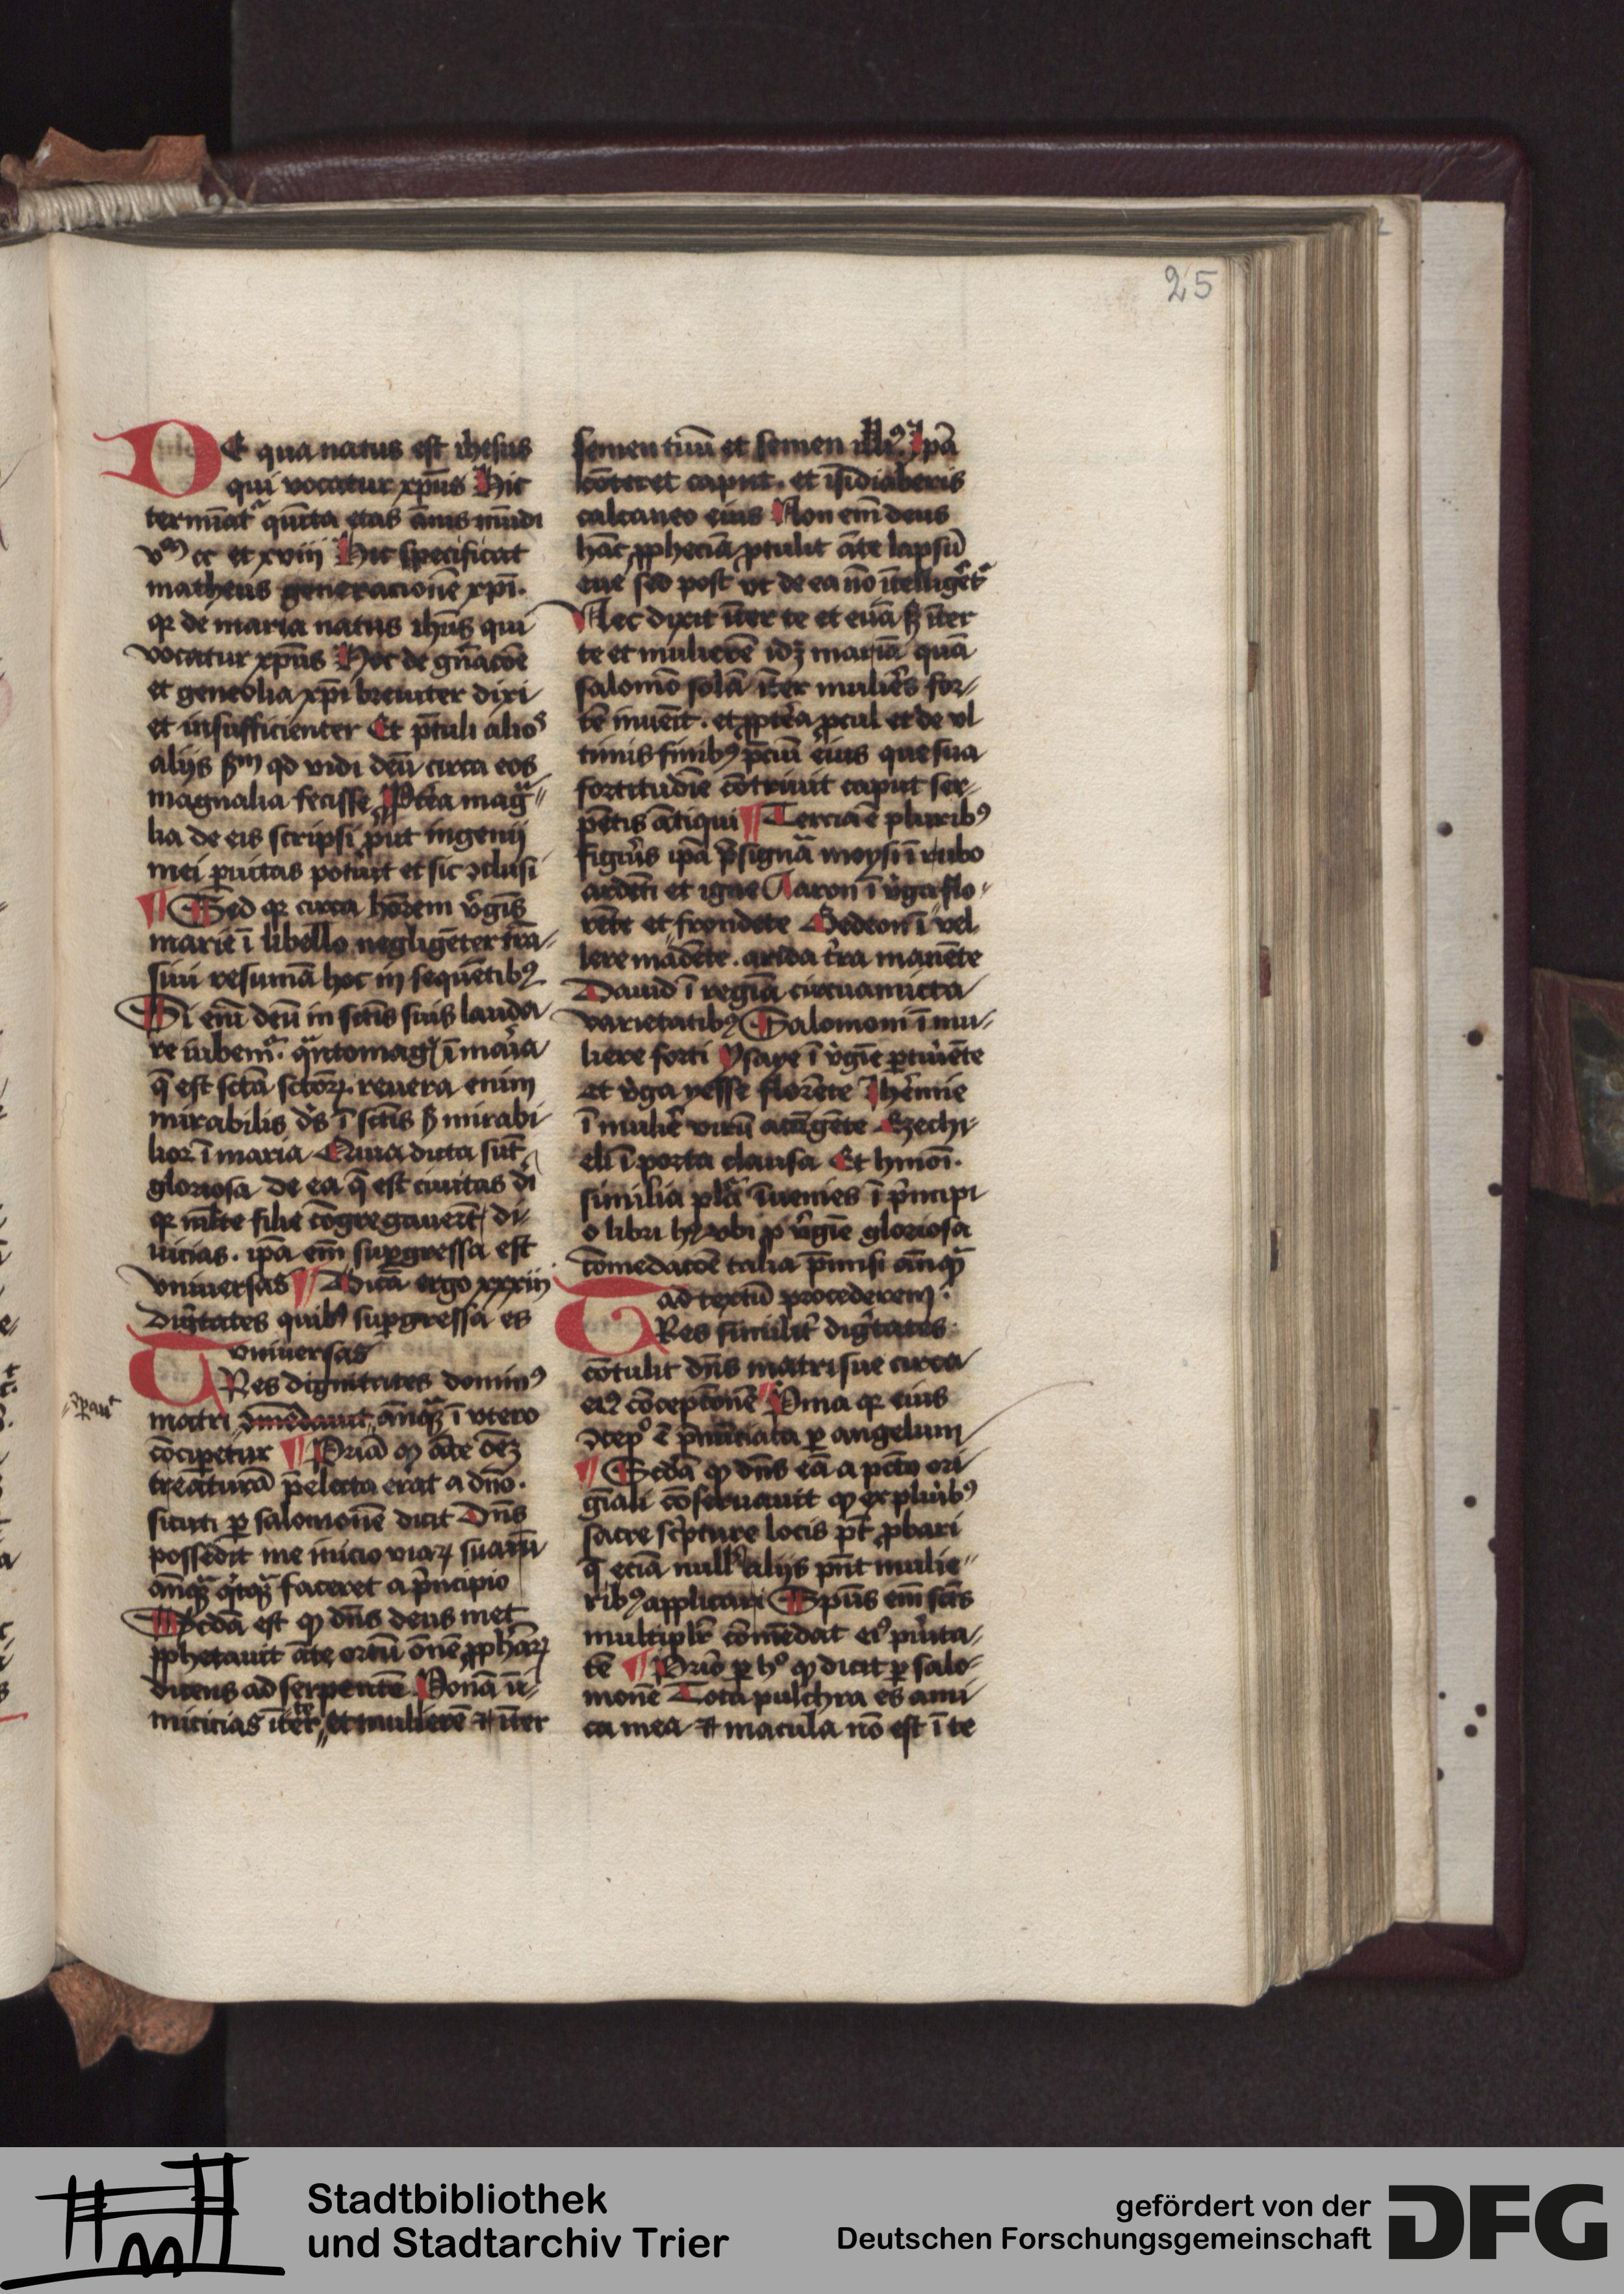 25
DE qua natus est ihesus
qui vocatur xp̄us Hic
termīatᵃ quīta etas ānis mūdi
vᵐ cc et xviij Hic specificat
matheus generacionē xp̄i.
qꝛ de maria natus ihūs qui
vocatur xp̄us Hoc de gn̄acōe
et geneolia xp̄i breuiter dixi
et insufficienter Et p̄tuli alios
alijs qd vidi deū circa eos
magnalia fecisse
lia de eis scripsi put ingenij
mei ꝑuitas potuit et sic ↄclusi
¶ Sed qꝛ circa hōrem v̓gīs
marie ī libello negligēter trā
siui resumā hoc in sequētibꝰ
Si em̄ deū in sctīs suis lauda
re iubemᵃ. qᵃntomagꝭ ī mar̄ia
q̄ est sctā sctōꝝ. reuera enim
mirabilis dꝰs ī sctīs mirabi
lior ī maria Quia dicta sūt
gloriosa de ea q̄ est ciuitas di
qꝛ ml̄te filie cōgregauerūt di
uicias. ip̄a em̄ suꝑgressa est
vniuersas ¶ Dicā ergo xxxiij
digtates quibꝰ suꝑgressa es
vniuersas
TRes dignitates dominꝰ
p̄parauit
matri ↄmēdauit anq̄ᵃ ī vtero
cōcipetur ¶ Primā ꝙ āte oēꝫ
creaturā p̄electa erat a dn̄o.
sicuti ꝑ salomonē dicit Dn̄s
possedit me inicio viaꝝ suarū
anq̄ᵃ qᵢcqᵃ faceret a p̓ncipio
Scdā est ꝙ dn̄s deus met
ꝓphetauit āte ortū ōnē ꝓphāꝝ
dicens ad serpentē Ponā ī
micicias īter te et mulierē ⁊ īter
semen tuū et semen illiꝰ Ip̄a
cōteret caput. et īsidiaberis
calcaneo eius Non em̄ deus
hāc ꝓpheciā ꝓtulit āte lapsū
eue sed post vt de ea nō ītelligēt̓
Nec dixit īter te et euā sꝫ īter
te et mulierē idꝫ mariā quā
salomō solā īter mulier̄s for
tē inuēit. et ꝓptēa ꝓcul et de vl
timis finibꝰ p̄ciū eius que sua
fortitudīe cōtriuit caput ser
pētis ātiqui ¶ Tercia ē pluribꝰ
figur̄s ip̄a p̄signā moysi ī rubo
ardēti et igne Aaron ī v̓ga flo
rēte et frondēte Gedeon ī vel
lere madēte. arida tr̄a manēte
Dauid ī regīa circuamicta
varietatibꝰ Salomoni ī mu
liere forti Ysaye ī v̓gīe ꝑturiēte
et v̓ga yesse florēte Iher̄mie
ī mulier̄ virū circūgēte Ezechi
eli ī porta clausa Et hmōi.
similia pl̄a īuenies ī p̓ncipi
o libri hꝰ vbi ꝓ v̓gīe gloriosa
cōmēdacōe talia p̄misi anq̄ᵃ
ad textū procederem.
TRes similit̓ digtates
cōtulit dn̄s matri sue circa
eiꝰ cōceptionē ¶ Pma qꝛ eius
ↄcepᵒ ē p̄nūciata ꝑ angelum
¶ Scdā ꝙ dn̄s eā a pctō ori
gīali cōseruauit ꝙ ex plur̄ibꝰ
sacre sc̓pture locis pt̄ ꝓbari
q̄ eciā null̓ alijs pn̄t mulie
ribꝰ applicari Spūs em̄ sctūs
multiplr̄ cōmēdat eiꝰ purita
tē ¶ Primo ꝑ hᵒ ꝙ dicit ꝑ salo
monē Tota pulchra es ami
ca mea ⁊ macula nō est ī te
Stadtbibliothek
und Stadtarchiv Trier
gefördert von der
Deutschen Forschungsgemeinschaft
DFG